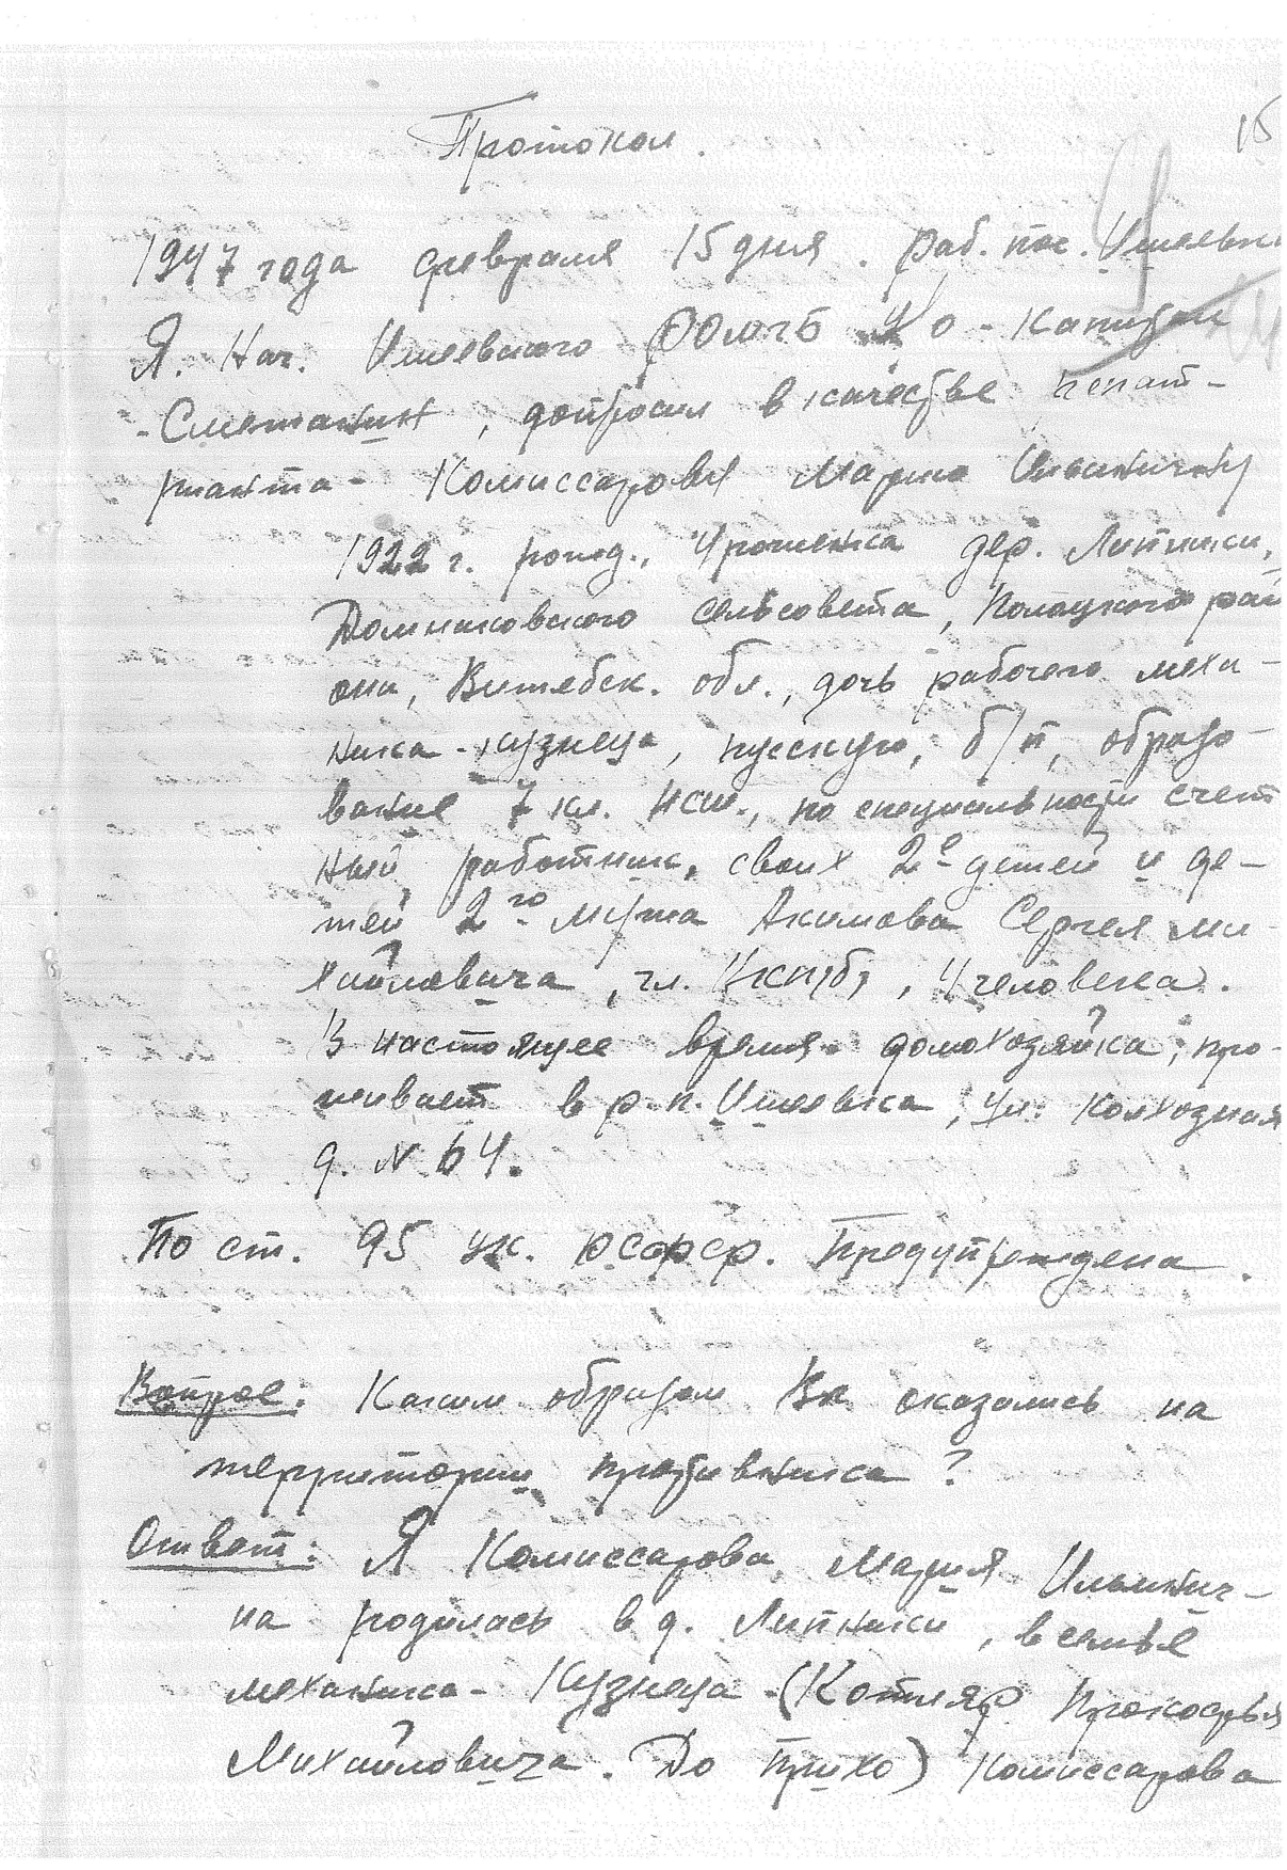 15
Протокол.
1947 года февраля 15 дня. раб. пос. Ишеевк
Я. Нач. Ишеевского РОМГБ У/о - Капитан
- Сметанин, допросил в качестве
- Комиссарову Марию Ильиничну
1922 г. рожд., Уроженка дер. Липники,
Домниковского сельсовета, Полоцкого рай
она, Витебск. обл., дочь рабочего меха-
ника - кузнеца, русскую, б/п, образо-
вание 7 кл. НСШ., по специальности счет
ный работник, своих 2е детей и де-
тей 2го мужа Акимова Сергея Ми-
хайловича, чл. ВКП(б), 4 человека.
В настоящее время домохозяйка, про-
живает в р.п. Ишеевка, ул. Колхозная
д. N 64.
По ст. 95 УК. РСФСР. Предупреждена.
Вопрос: Каким образом Вы оказались на
территории противника?
Ответ: Я Комиссарова Мария Ильинич-
на родилась в д. Липники, в семье
механика - Кузнеца - (Котляр Прокофья
Михайловича. До) Комиссарова